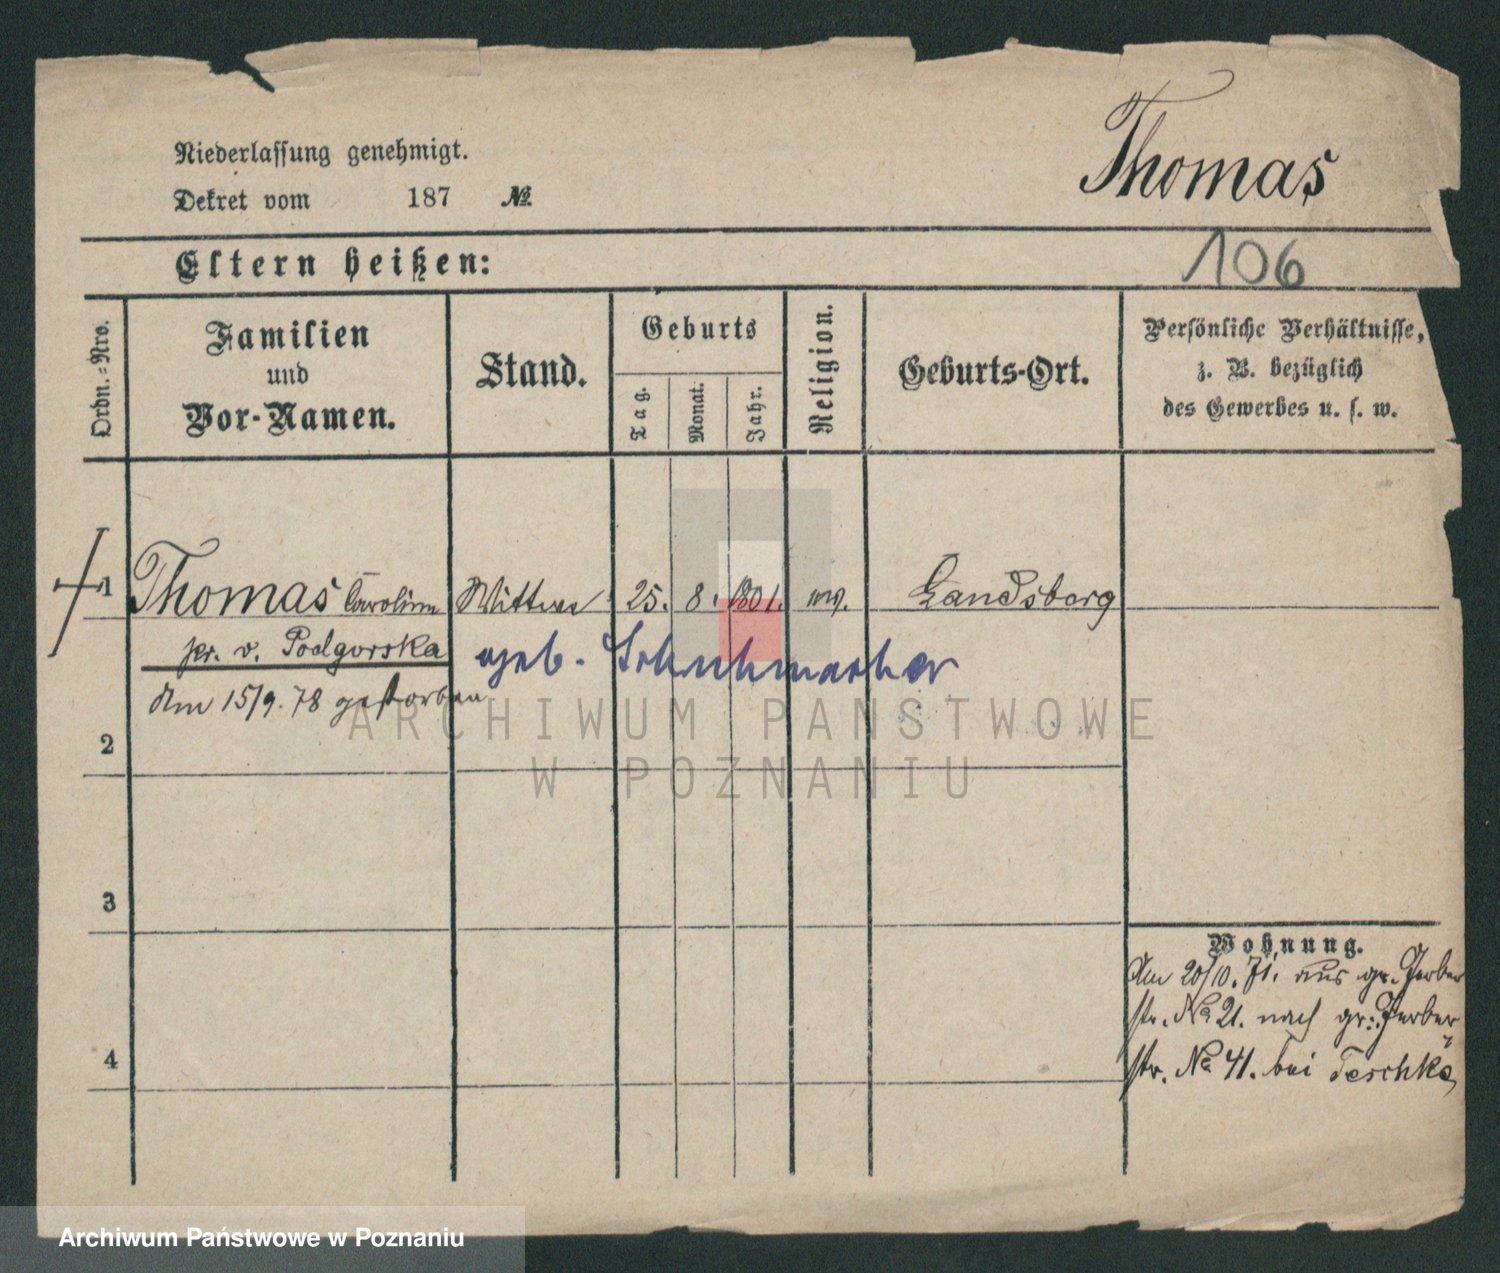 Niederlassung genehmigt.
Dekret vom 187 №
Thomas
Eltern heißen:
106
Ordn.-Nro.
Familien
und
Vor-Namen.
Stand.
Geburts
Tag.
Monat.
Jahr.
Religion.
Geburts-Ort.
Persönliche Verhältnisse,
z. B. bezüglich
des Gewerbes u. s. w.
1 Thomas Caroline Wittwe 25. 8. 1801. Landsberg
pr. v. Podgorska
geb. Schuhmacher
Am 15/9. 78 gestorben
2
3
4
Wohnung.
Am 20/10. 71. aus gr. Gerber
str. No 21. nach gr. Gerber
str. No 41. bei Teschke
ARCHIWUM PAŃSTWOWE
W POZNANIU
Archiwum Państwowe w Poznaniu